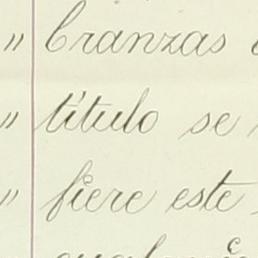 " branzas
" título se
" fiere este